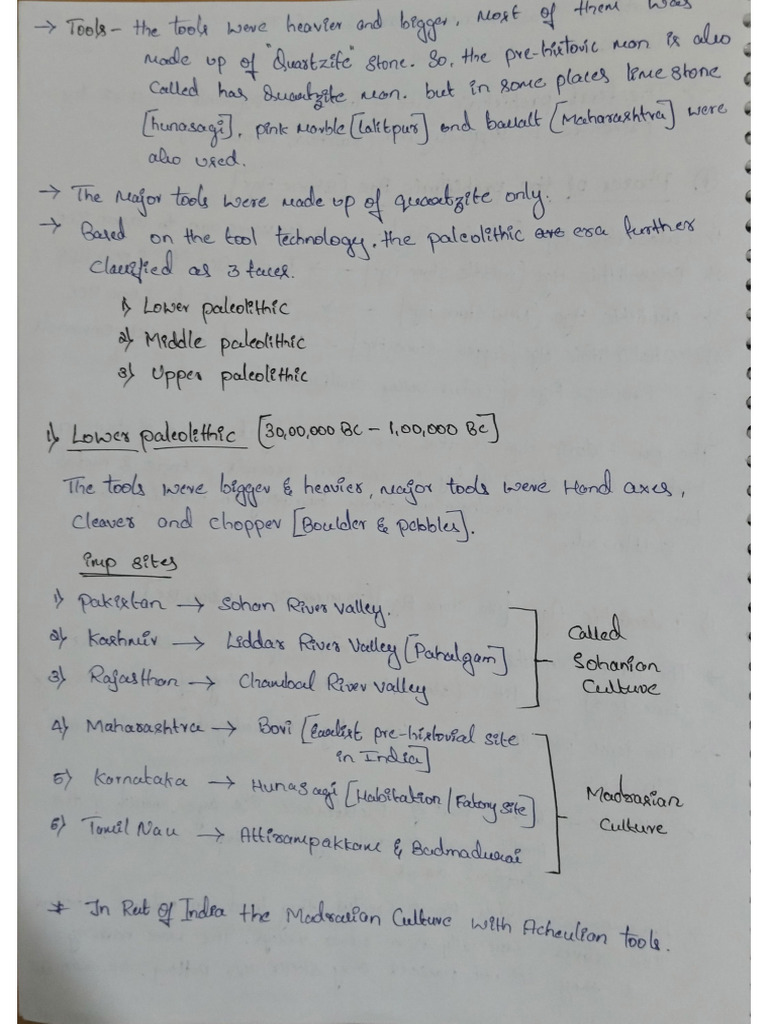 → Tools - the tools were heavier and bigger, Most of them was
made up of "Quartzite" stone. So, the pre-historic man is also
Called has Quartzite man. but in some places lime stone
[hunasagi], pink marble [lalitpur] and basalt [Maharashtra] were
also used.
→ The Major tools were made up of quartzite only.
→ Based on the tool technology, the paleolithic are era further
classified as 3 faces.
1) Lower paleolithic
2) Middle paleolithic
3) Upper paleolithic
1) Lower paleolithic [30,00,000 BC - 1,00,000 BC]
The tools were bigger & heavier, major tools were Hand axes,
Cleaver and chopper [Boulder & pebbles].
imp sites
1) Pakistan → Sohan River valley.
2) Kashmir → Liddar River Valley [Pahalgam]
3) Rajasthan → Chambal River valley
Called
Sohanian
Culture
4) Maharashtra → Bori [Earlist pre-historial site
in India]
5) Karnataka → Hunasagi [Habitation / Fatory site]
6) Tamil Nau → Attirampakkam & Badmadurai
Madrasian
Culture
* In Rest Of India the Madrasian Culture with Acheulian tools.